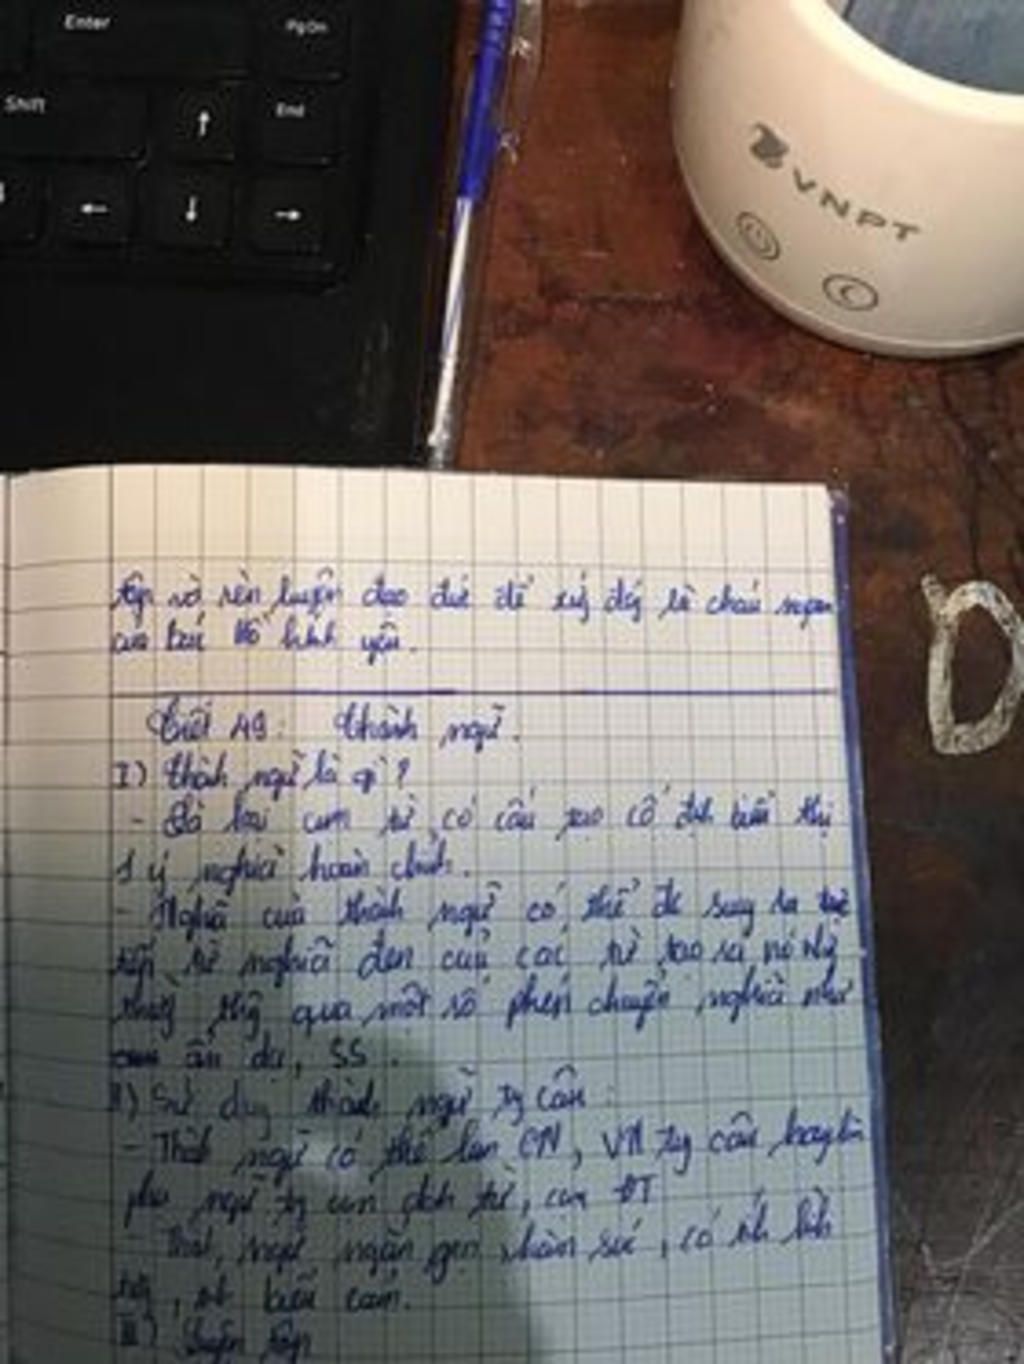 Enter
PgDn
Shift
End
VNPT
D
tập và rèn luyện đạo đức để xứ đág là cháu ngoan
của bác Hồ kính yêu.
Tiết 48: Thành ngữ.
I) Thành ngữ là gì?
- Là loại cụm từ có cấu tạo cố định biểu thị
1 ý nghĩa hoàn chỉnh.
- Nghĩa của thành ngữ có thể đc suy ra trực
tiếp từ nghĩa đen của các từ tạo ra nó nhg
thườg thôg qua một số phép chuyển nghĩa như
ẩn dụ, SS.
II) Sử dụg thành ngữ tg câu:
- Thành ngữ có thể làm CN, VN tg câu hay làm
phụ ngữ tg cụm dah từ, cụm ĐT
- Thàh ngữ ngắn gọn, hàm súc, có tíh hìh
tượg, tíh biểu cảm.
III) Luyện tập